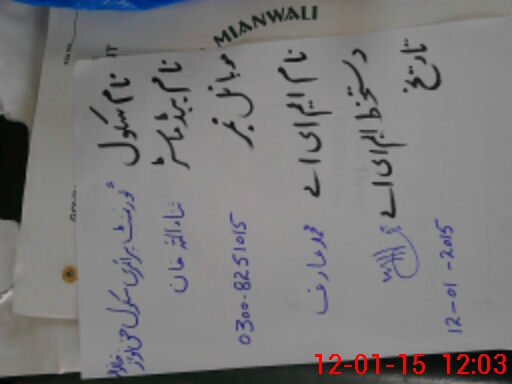 MIANWALI
نام سکول گورنمنٹ پرائمری سکول
نام ہیڈ ماسٹر ثناء اللہ خان
موبائل نمبر 0300-8251015
نام ایم ای اے محمد عارف
دستخط ایم ای اے
تاریخ 12-01-2015
12-01-15 12:03